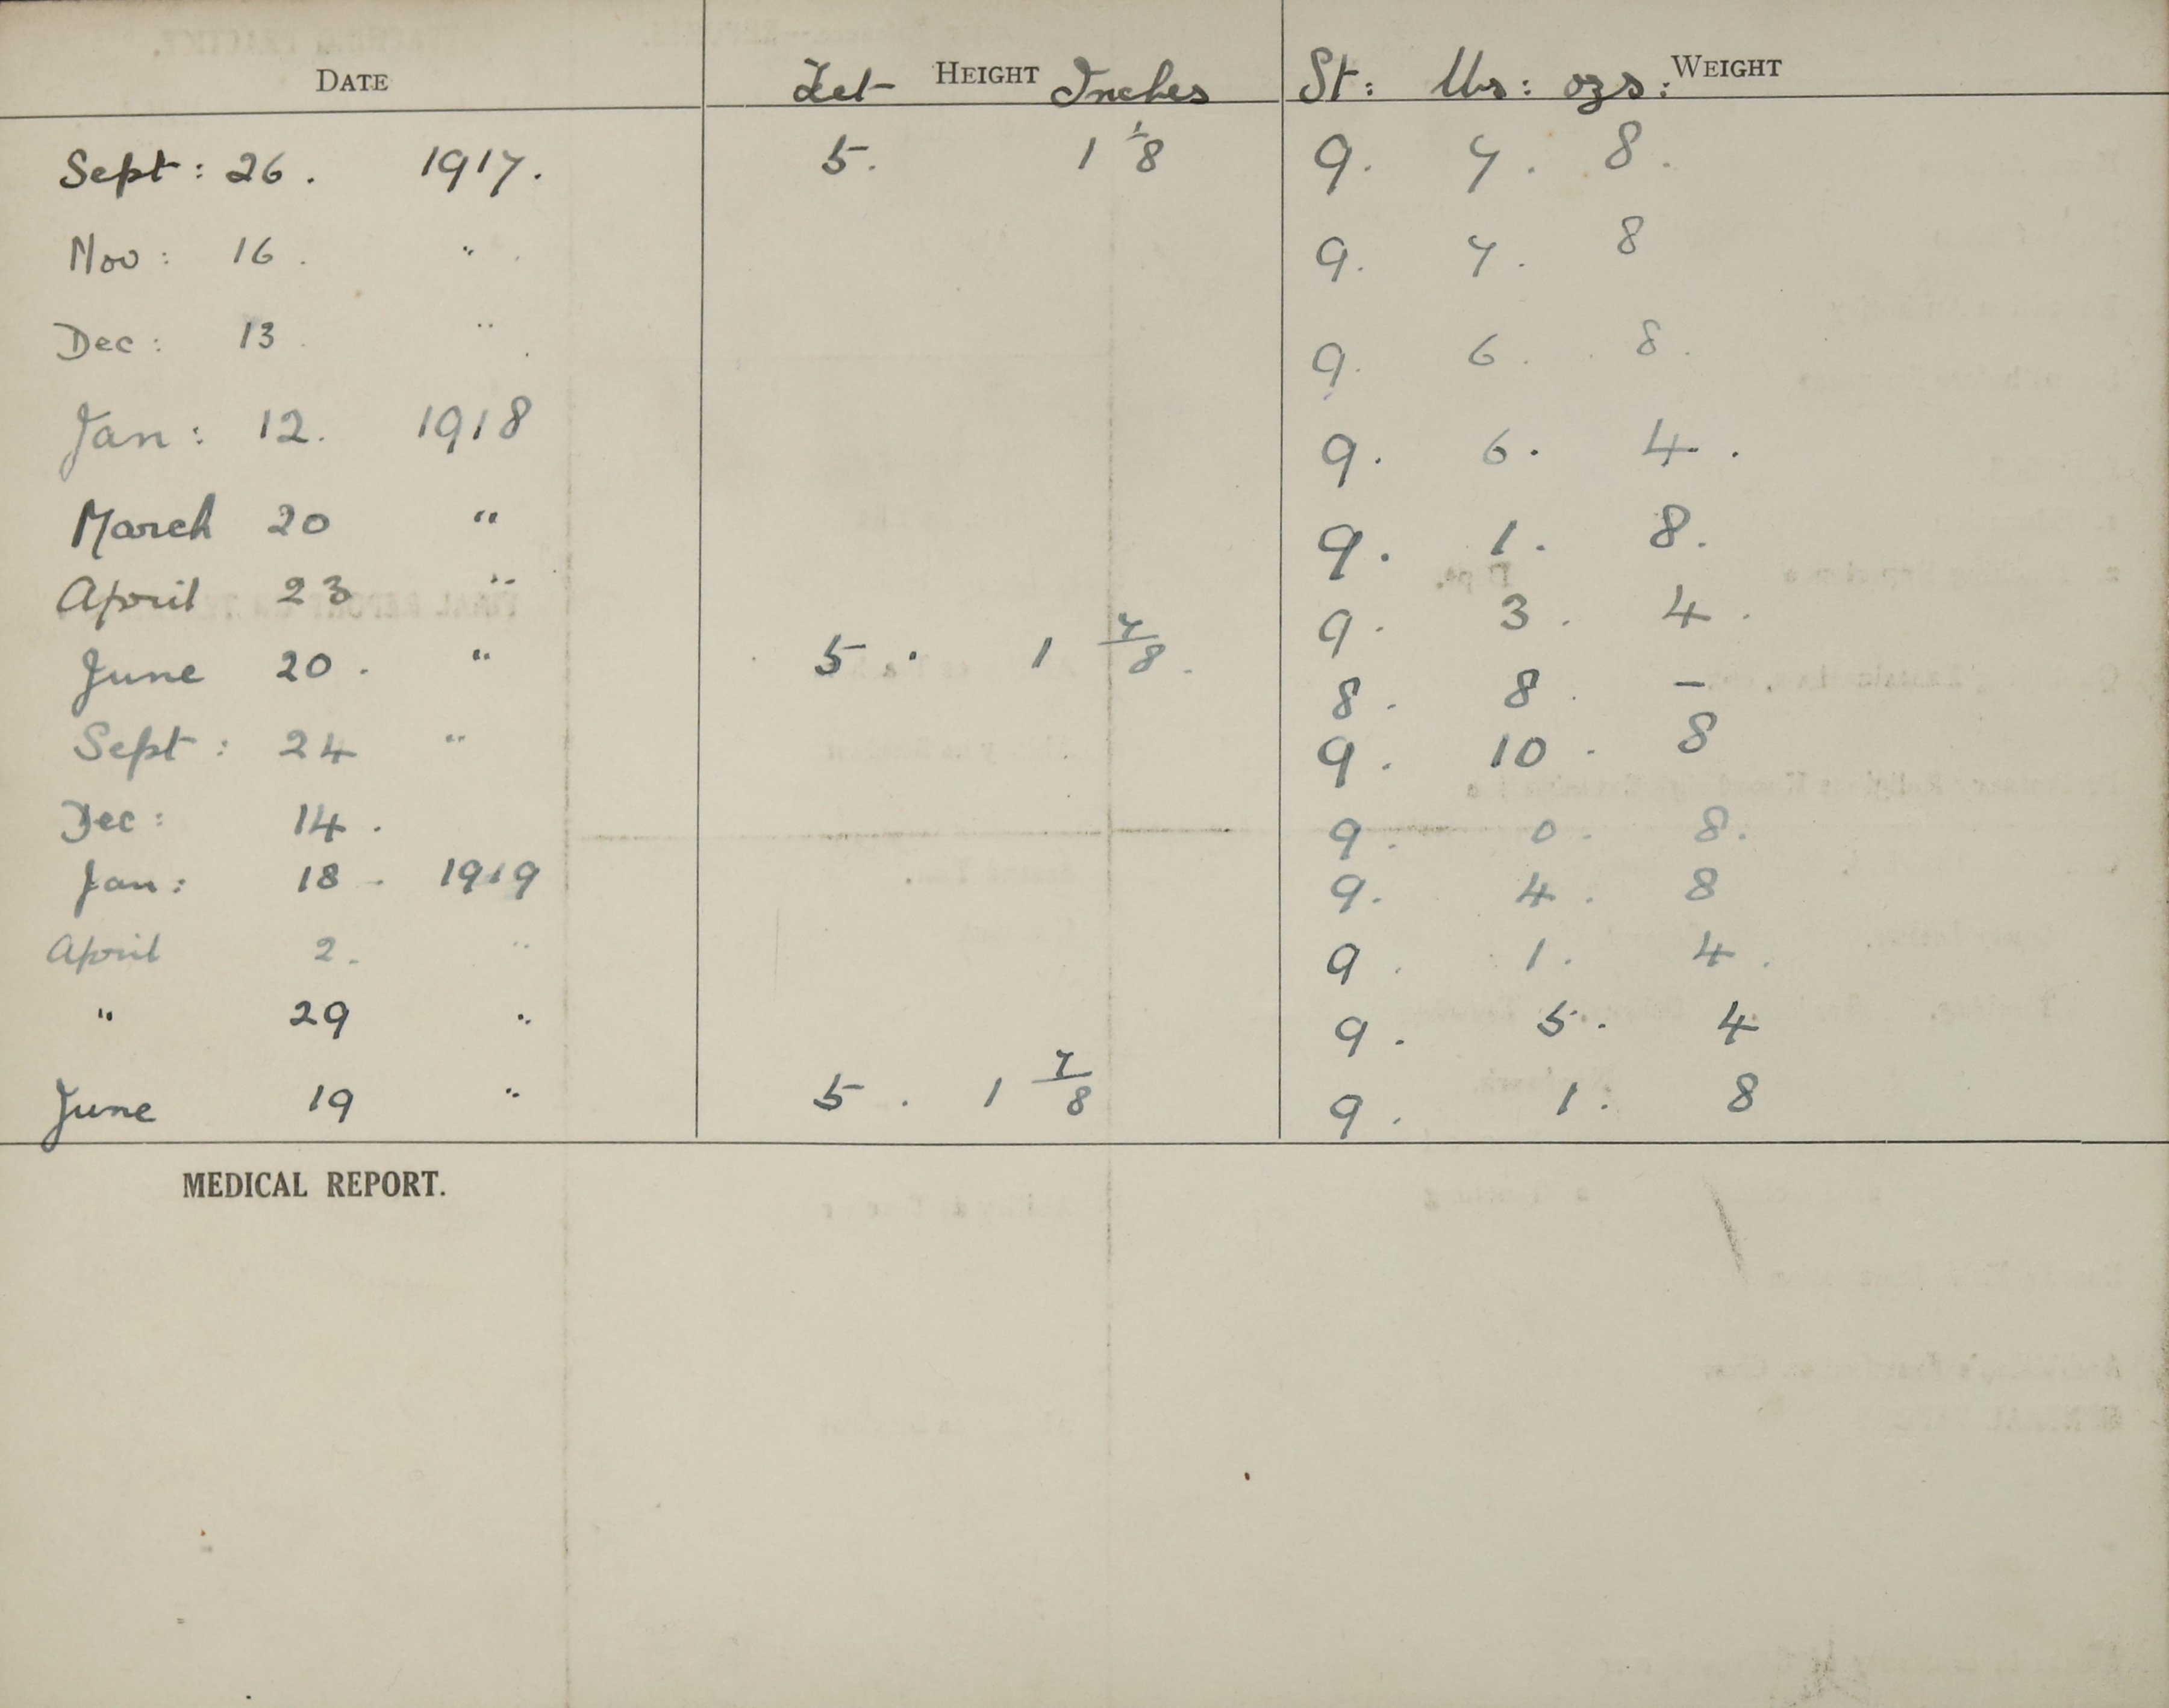 DATE Feet HEIGHT Inches St: lbs: ozs: WEIGHT
Sept: 26. 1917. 5. 1 1/8 9. 7. 8.
Nov: 16. " 9. 7. 8
Dec: 13 " 9. 6. 8.
Jan: 12. 1918 9. 6. 4.
March 20 " 9. 1. 8.
April 23 " 9. 3. 4.
June 20. " 5. 1 7/8. 8. 8. –
Sept: 24 " 9. 10. 8
Dec: 14. 9. 0. 8.
Jan: 18 - 1919 9. 4. 8
April 2. " 9. 1. 4.
" 29 " 9. 5. 4
June 19 " 5. 1 7/8 9. 1. 8
MEDICAL REPORT.